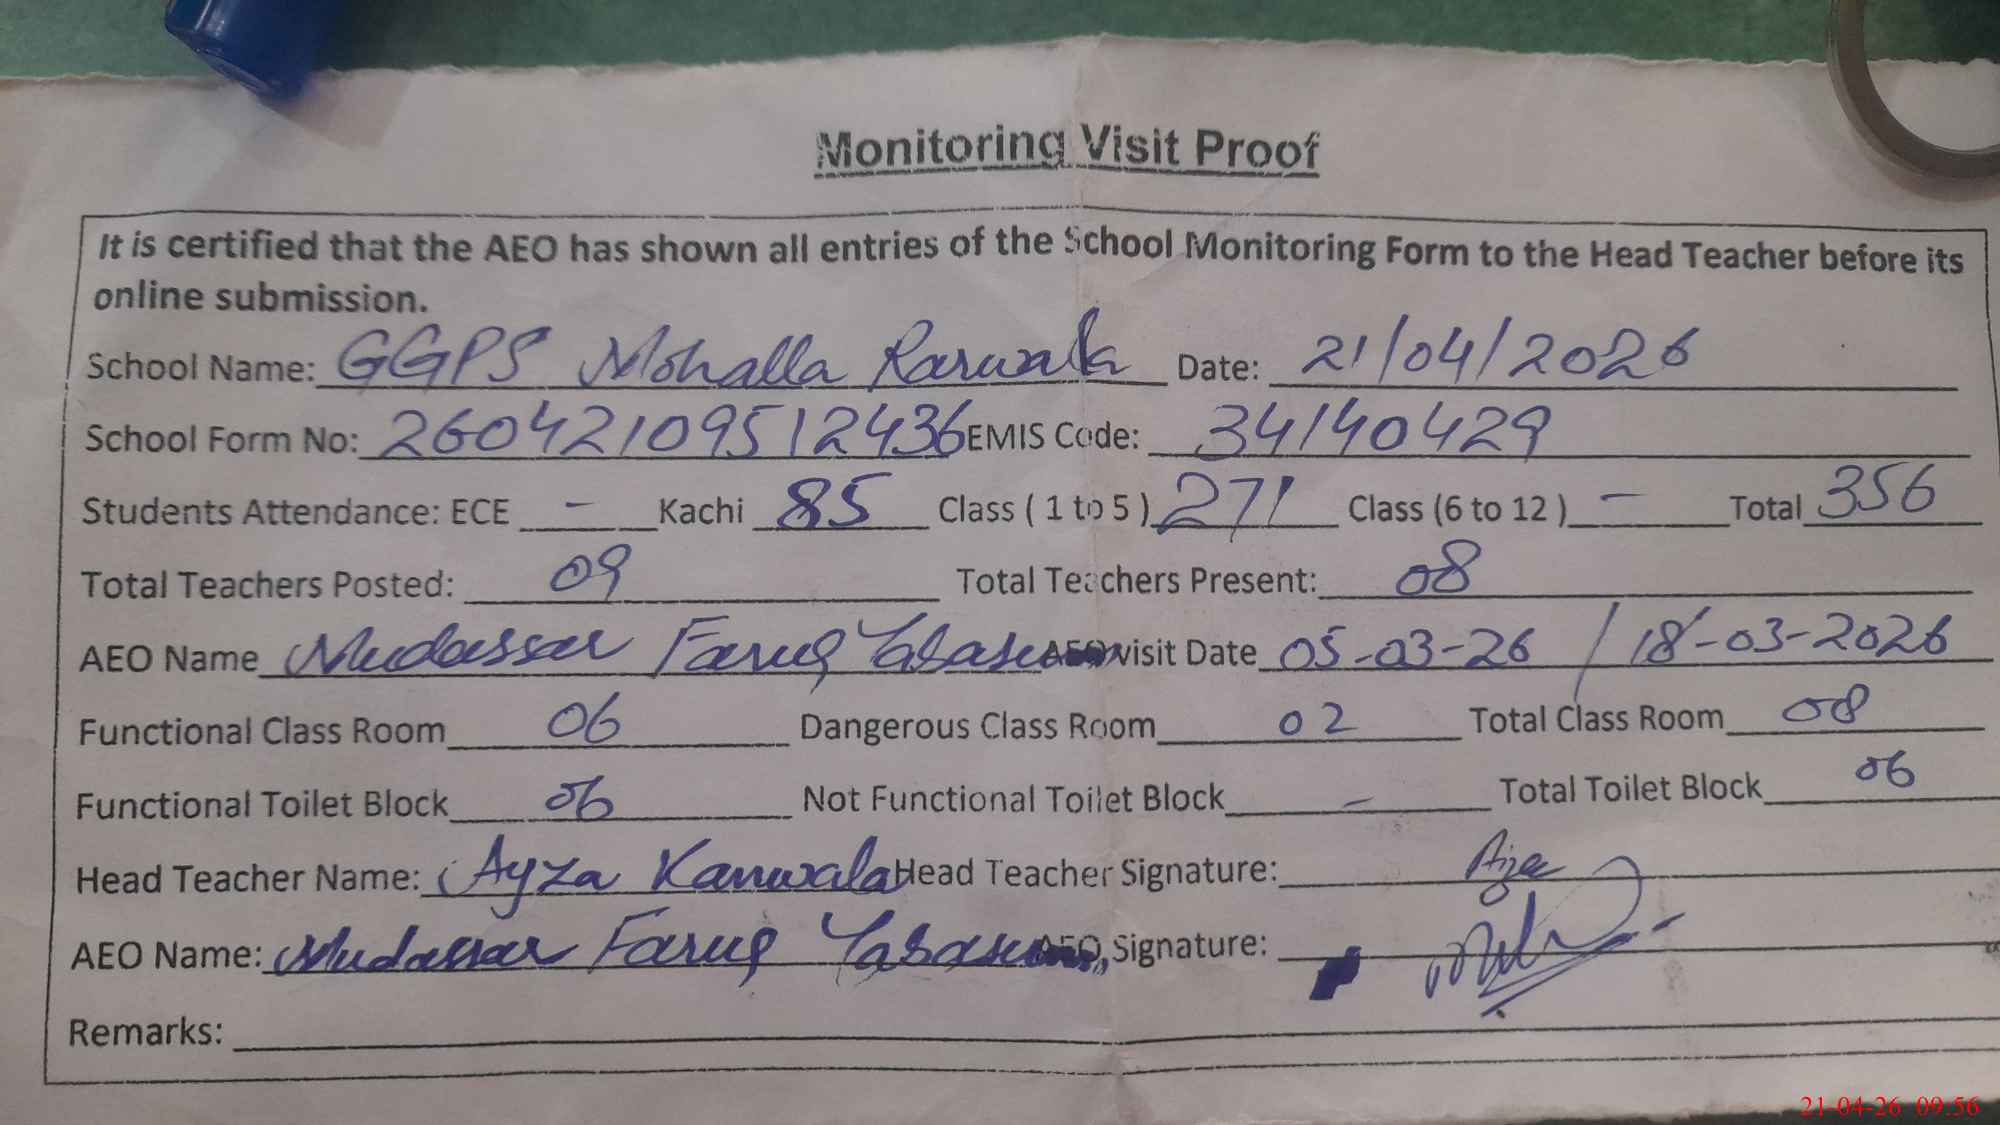 Monitoring Visit Proof
It is certified that the AEO has shown all entries of the School Monitoring Form to the Head Teacher before its
online submission.
School Name: GGPS Mohalla Rarwala Date: 21/04/2026
School Form No: 26042109512436 EMIS Code: 34140429
Students Attendance: ECE - Kachi 85 Class ( 1 to 5 ) 271 Class (6 to 12 ) - Total 356
Total Teachers Posted: 09 Total Teachers Present: 08
AEO Name Mudassar Faruq visit Date 05-03-26 / 18-03-2026
Functional Class Room 06 Dangerous Class Room 02 Total Class Room 08
Functional Toilet Block 06 Not Functional Toilet Block - Total Toilet Block 06
Head Teacher Name: Ayza Kanwala Head Teacher Signature:
AEO Name: Mudassar Faruq AEO, Signature:
Remarks:
21-04-26 09:56